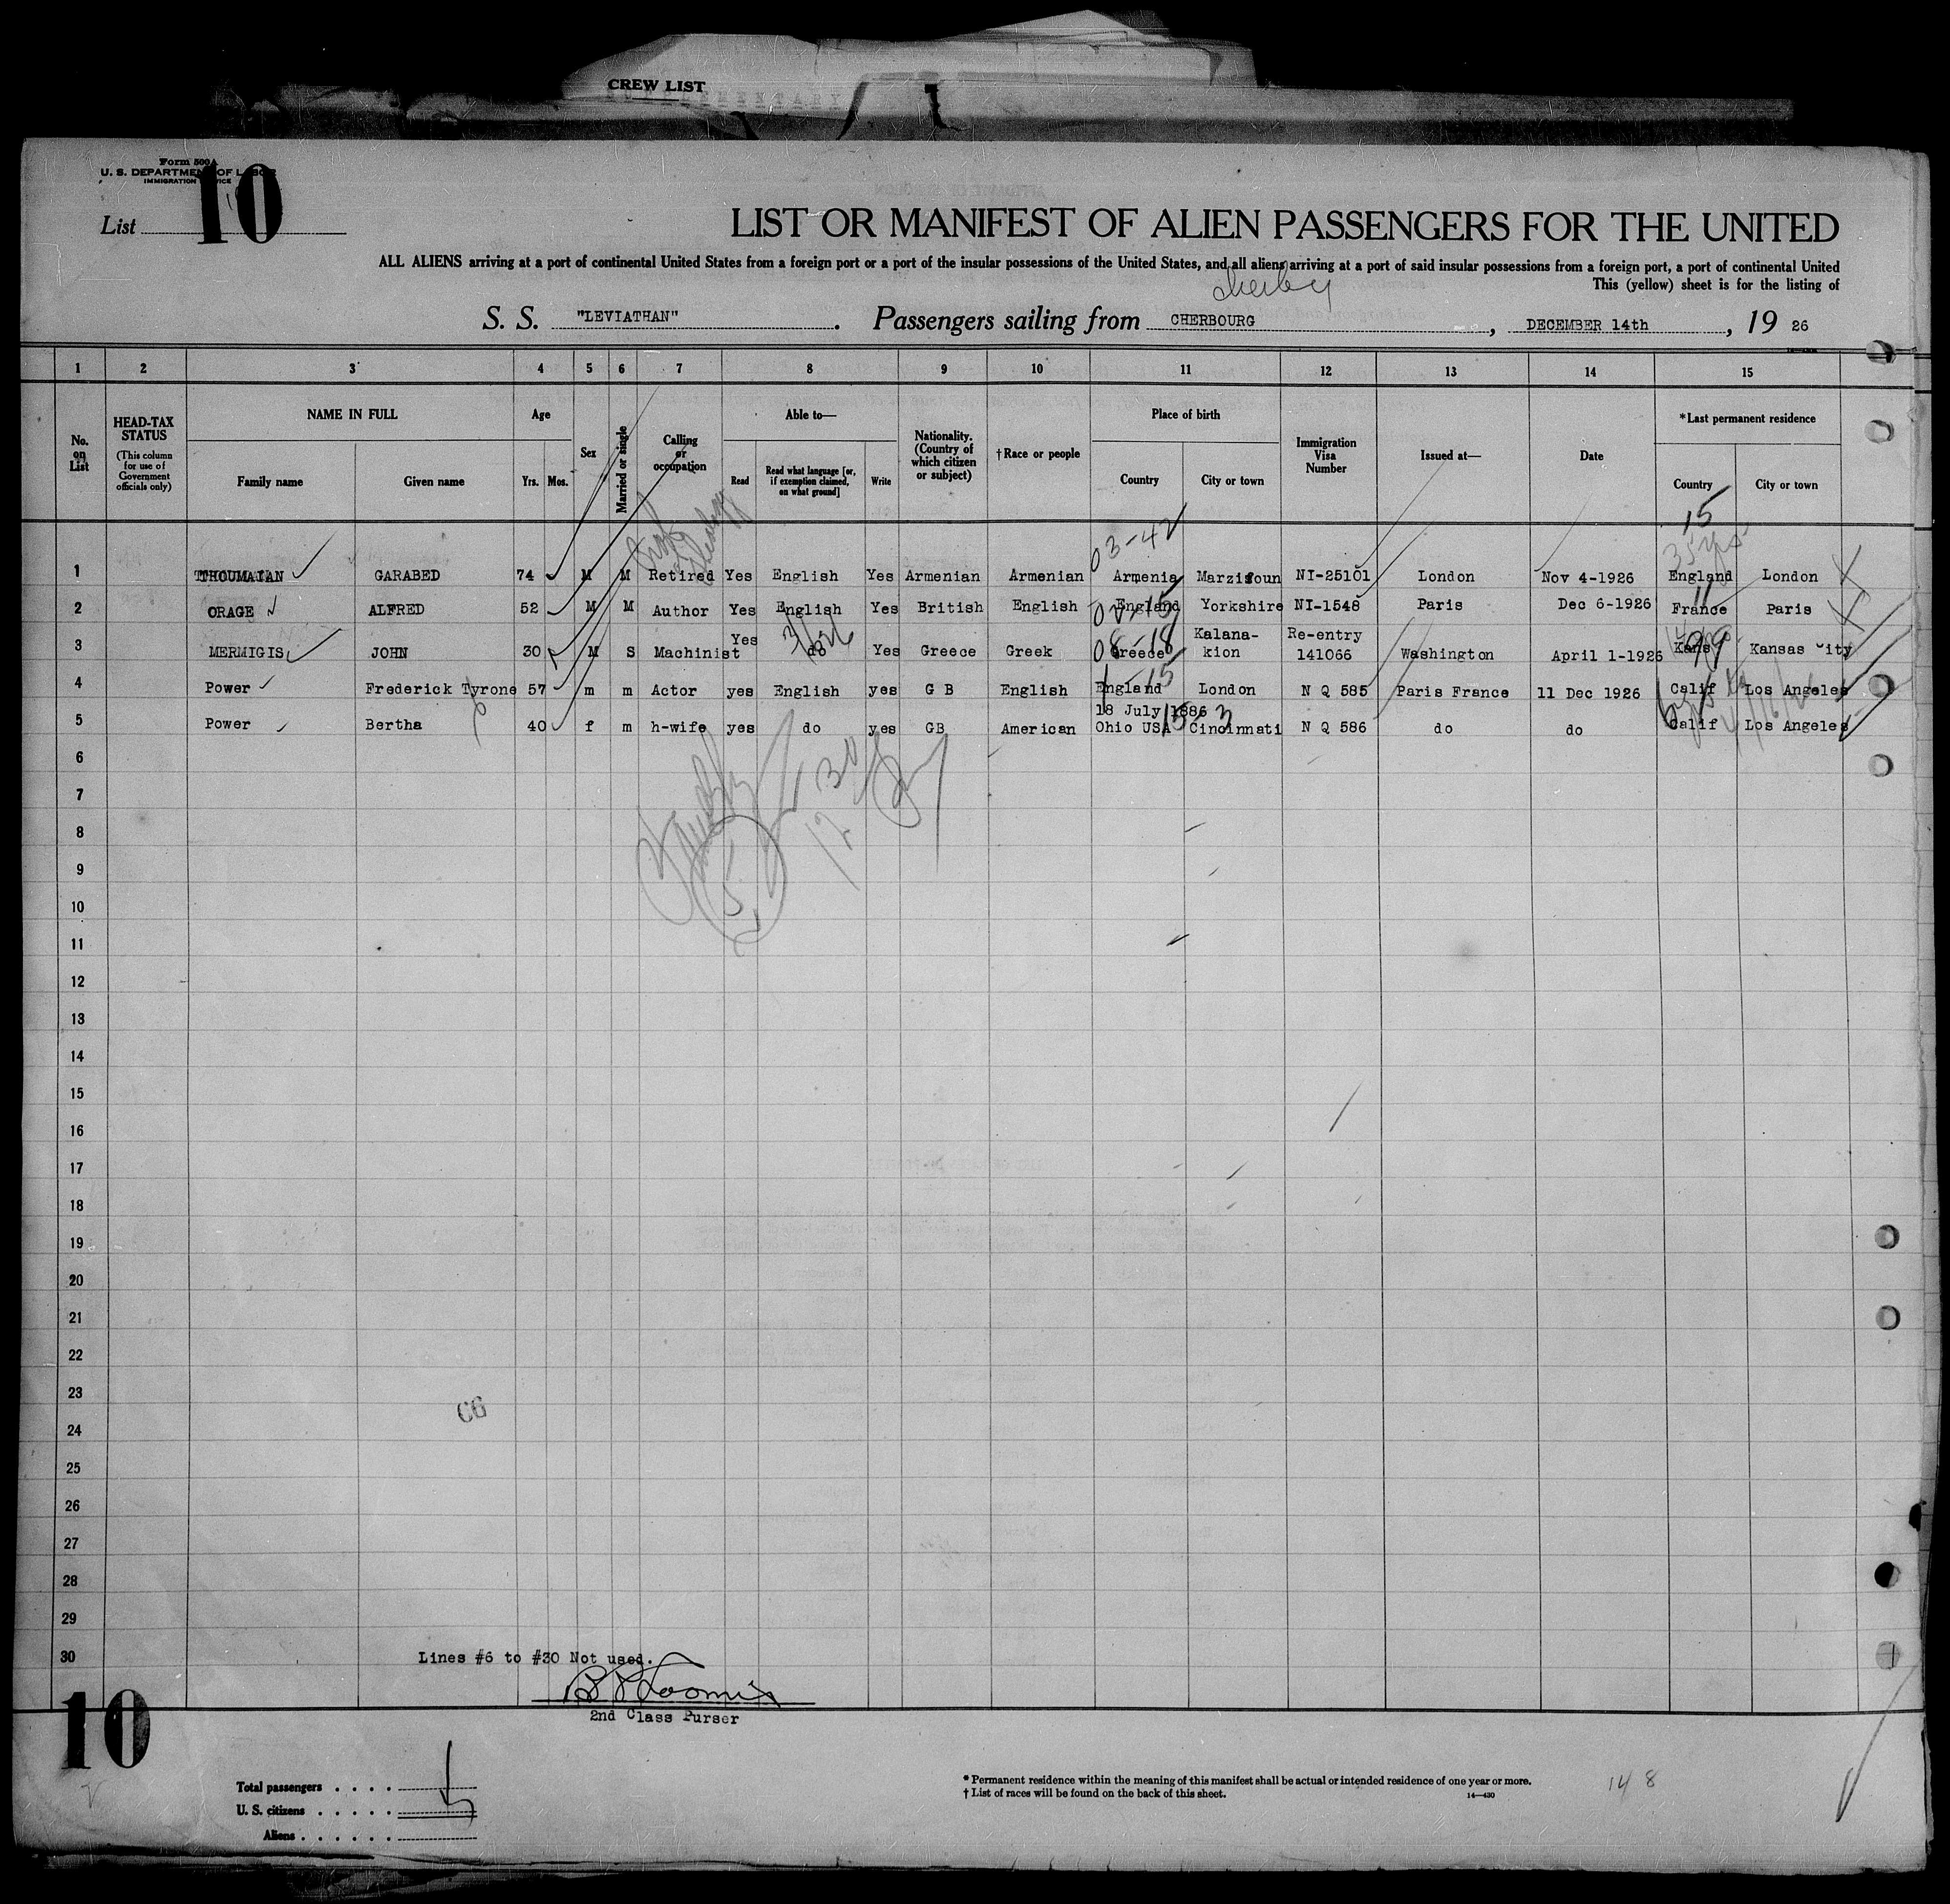 CREW LIST
Form 500A
U. S. DEPARTMENT OF LABOR
IMMIGRATION SERVICE
List 10
LIST OR MANIFEST OF ALIEN PASSENGERS FOR THE UNITED
ALL ALIENS arriving at a port of continental United States from a foreign port or a port of the insular possessions of the United States, and all aliens arriving at a port of said insular possessions from a foreign port, a port of continental United
This (yellow) sheet is for the listing of
S. S. "LEVIATHAN". Passengers sailing from CHERBOURG, DECEMBER 14th, 19 26
1 2 3 4 5 6 7 8 9 10 11 12 13 14 15
No. on List
HEAD-TAX STATUS (This column for use of Government officials only)
NAME IN FULL Family name Given name
Age Yrs. Mos.
Sex
Married or single
Calling or occupation
Able to— Read Read what language [or, if exemption claimed, on what ground] Write
Nationality. (Country of which citizen or subject)
†Race or people
Place of birth Country City or town
Immigration Visa Number
Issued at—
Date
*Last permanent residence Country City or town
03-42 15
35 yrs
1 THOUMAIAN GARABED 74 M M Retired Yes English Yes Armenian Armenian Armenia Marzifoun NI-25101 London Nov 4-1926 England London
2 ORAGE ALFRED 52 M M Author Yes English Yes British English England Yorkshire NI-1548 Paris Dec 6-1926 France Paris
3 MERMIGIS JOHN 30 M S Machinist Yes do Yes Greece Greek Greece Kalana-kion Re-entry 141066 Washington April 1-1926 Kans Kansas City
4 Power Frederick Tyrone 57 m m Actor yes English yes G B English England London N Q 585 Paris France 11 Dec 1926 Calif Los Angeles
18 July 1886
5 Power Bertha 40 f m h-wife yes do yes GB American Ohio USA Cincinnati N Q 586 do do Calif Los Angeles
6
7
8
9
10
11
12
13
14
15
16
17
18
19
20
21
22
23
24
25
26
27
28
29
30
Lines #6 to #30 Not used.
2nd Class Purser
10
Total passengers . . . .
U. S. citizens . . . . .
Aliens . . . . . .
* Permanent residence within the meaning of this manifest shall be actual or intended residence of one year or more.
† List of races will be found on the back of this sheet.
14—430
148